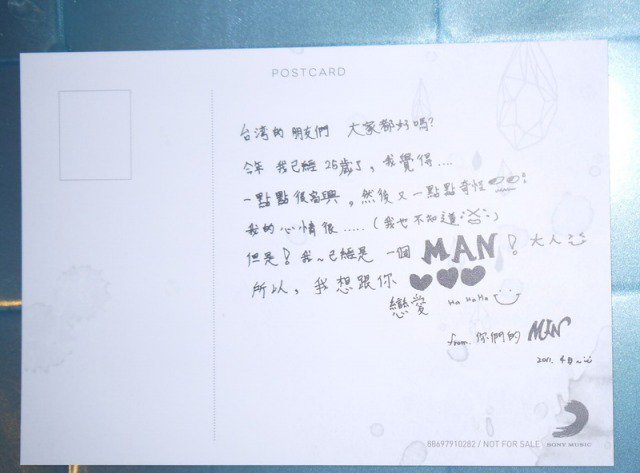 POSTCARD
台湾的朋友們 大家都好嗎?
今年 我已經 26歲了,我覺得....
一點點很高興,然後又一點點奇怪
我的心情很.....(我也不知道)
但是!我~已經是 一個 MAN! 大人
所以,我想跟你 ♥♥♥
戀愛 Ha Ha Ha
from. 你們的 MIN
2011. 4月~
88697910282 / NOT FOR SALE
SONY MUSIC